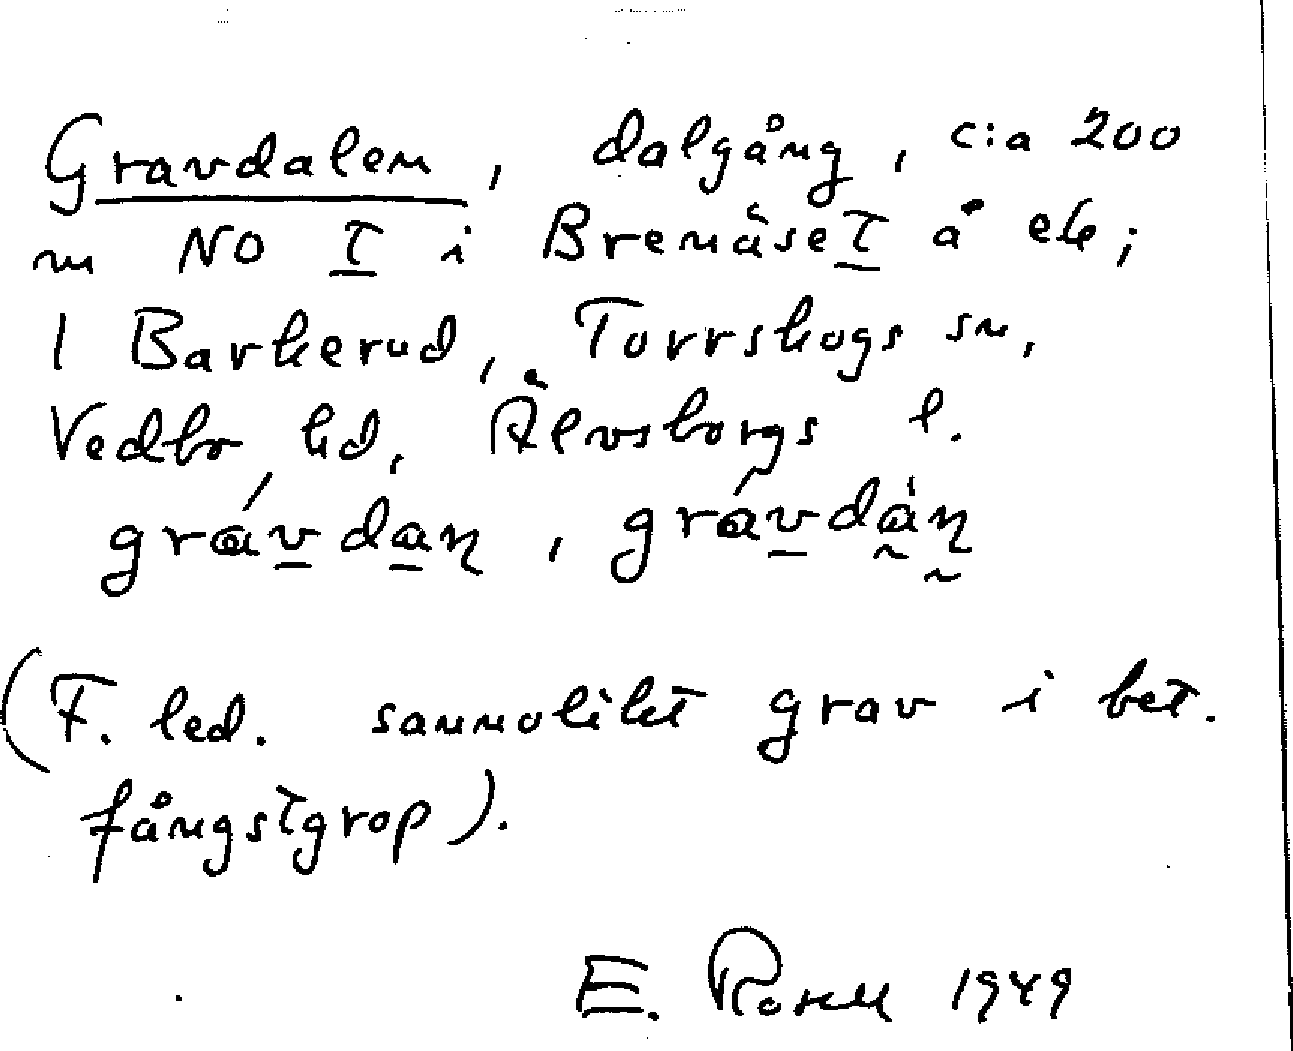 Gravdalen, dalgång, c:a 200
m NO T i BrenäseT å ek;
1 Barkerud, Torrskogs sn,
Vedbo hd, Älvsborgs l.
grávdaṇ, grávdàṇ
(F. led. sannolikt grav i bet.
fångstgrop).
E. 1949